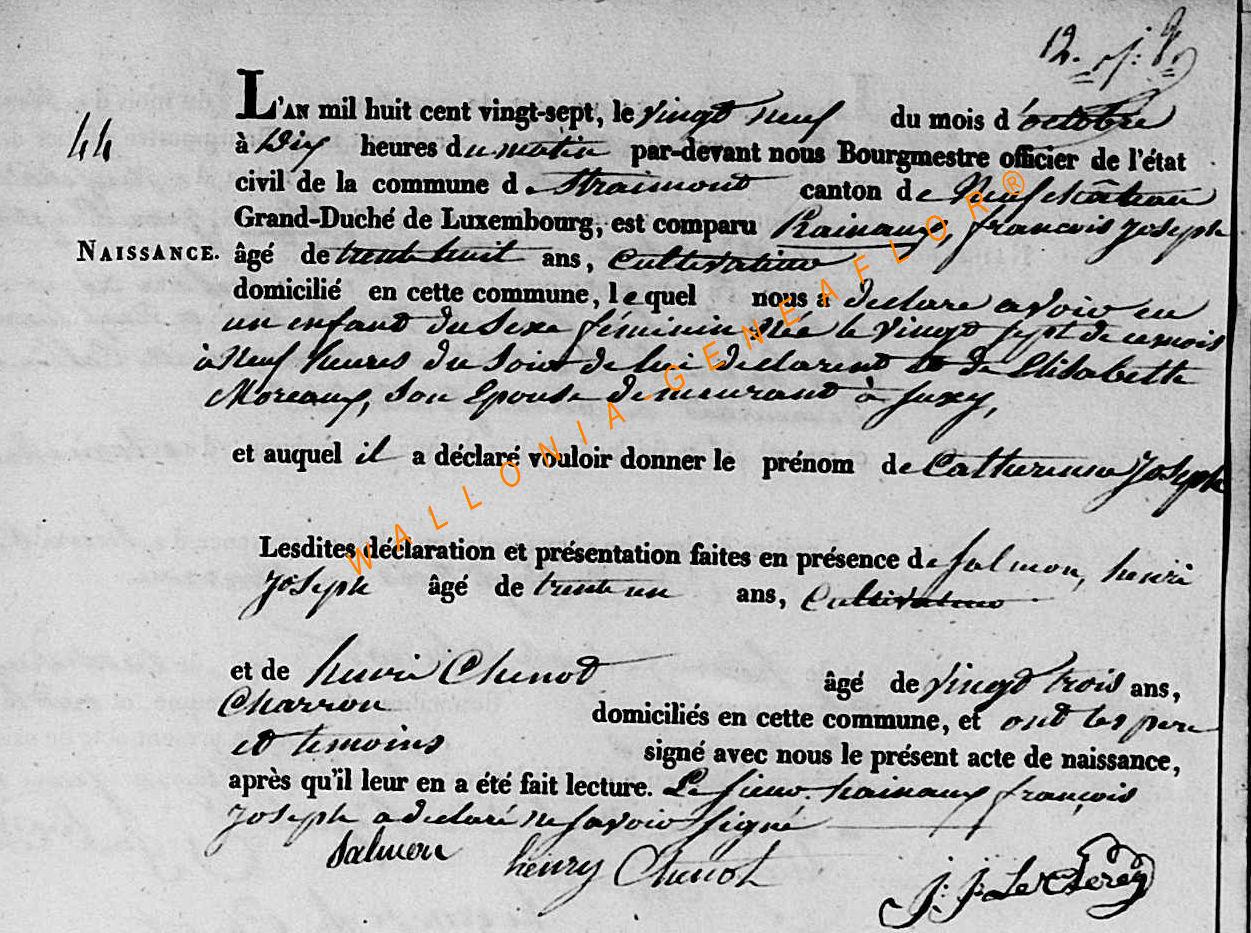 12.
L'AN mil huit cent vingt-sept, le vingt neuf du mois d'octobre
44
à Dix heures du matin par-devant nous Bourgmestre officier de l'état
civil de la commune de Straimont canton de Neufchâteau
Grand-Duché de Luxembourg, est comparu Hainaux, francois Joseph
NAISSANCE. âgé de trente huit ans, Cultivateur
domicilié en cette commune, lequel nous a declaré avoir eu
un enfant du Sexe féminin Née le vingt sept de ce mois
à Neuf heures du Soir de lui declarent et de Elisabeth
Moreaux, Son Epouse demeurant à Suxy,
et auquel il a déclaré vouloir donner le prénom de Catherine Joseph
Lesdites déclaration et présentation faites en présence de Salmon, henri
Joseph âgé de trente un ans, Cultivateur
et de henri Chenot âgé de vingt trois ans,
Charron domiciliés en cette commune, et ont les pere
et temoins signé avec nous le présent acte de naissance,
après qu'il leur en a été fait lecture. Le sieur hainaux françois
Joseph a declaré ne savoir signé
Salmon henry Chenot J: J: Le Clerc
WALLONIA GENEAFLOR®